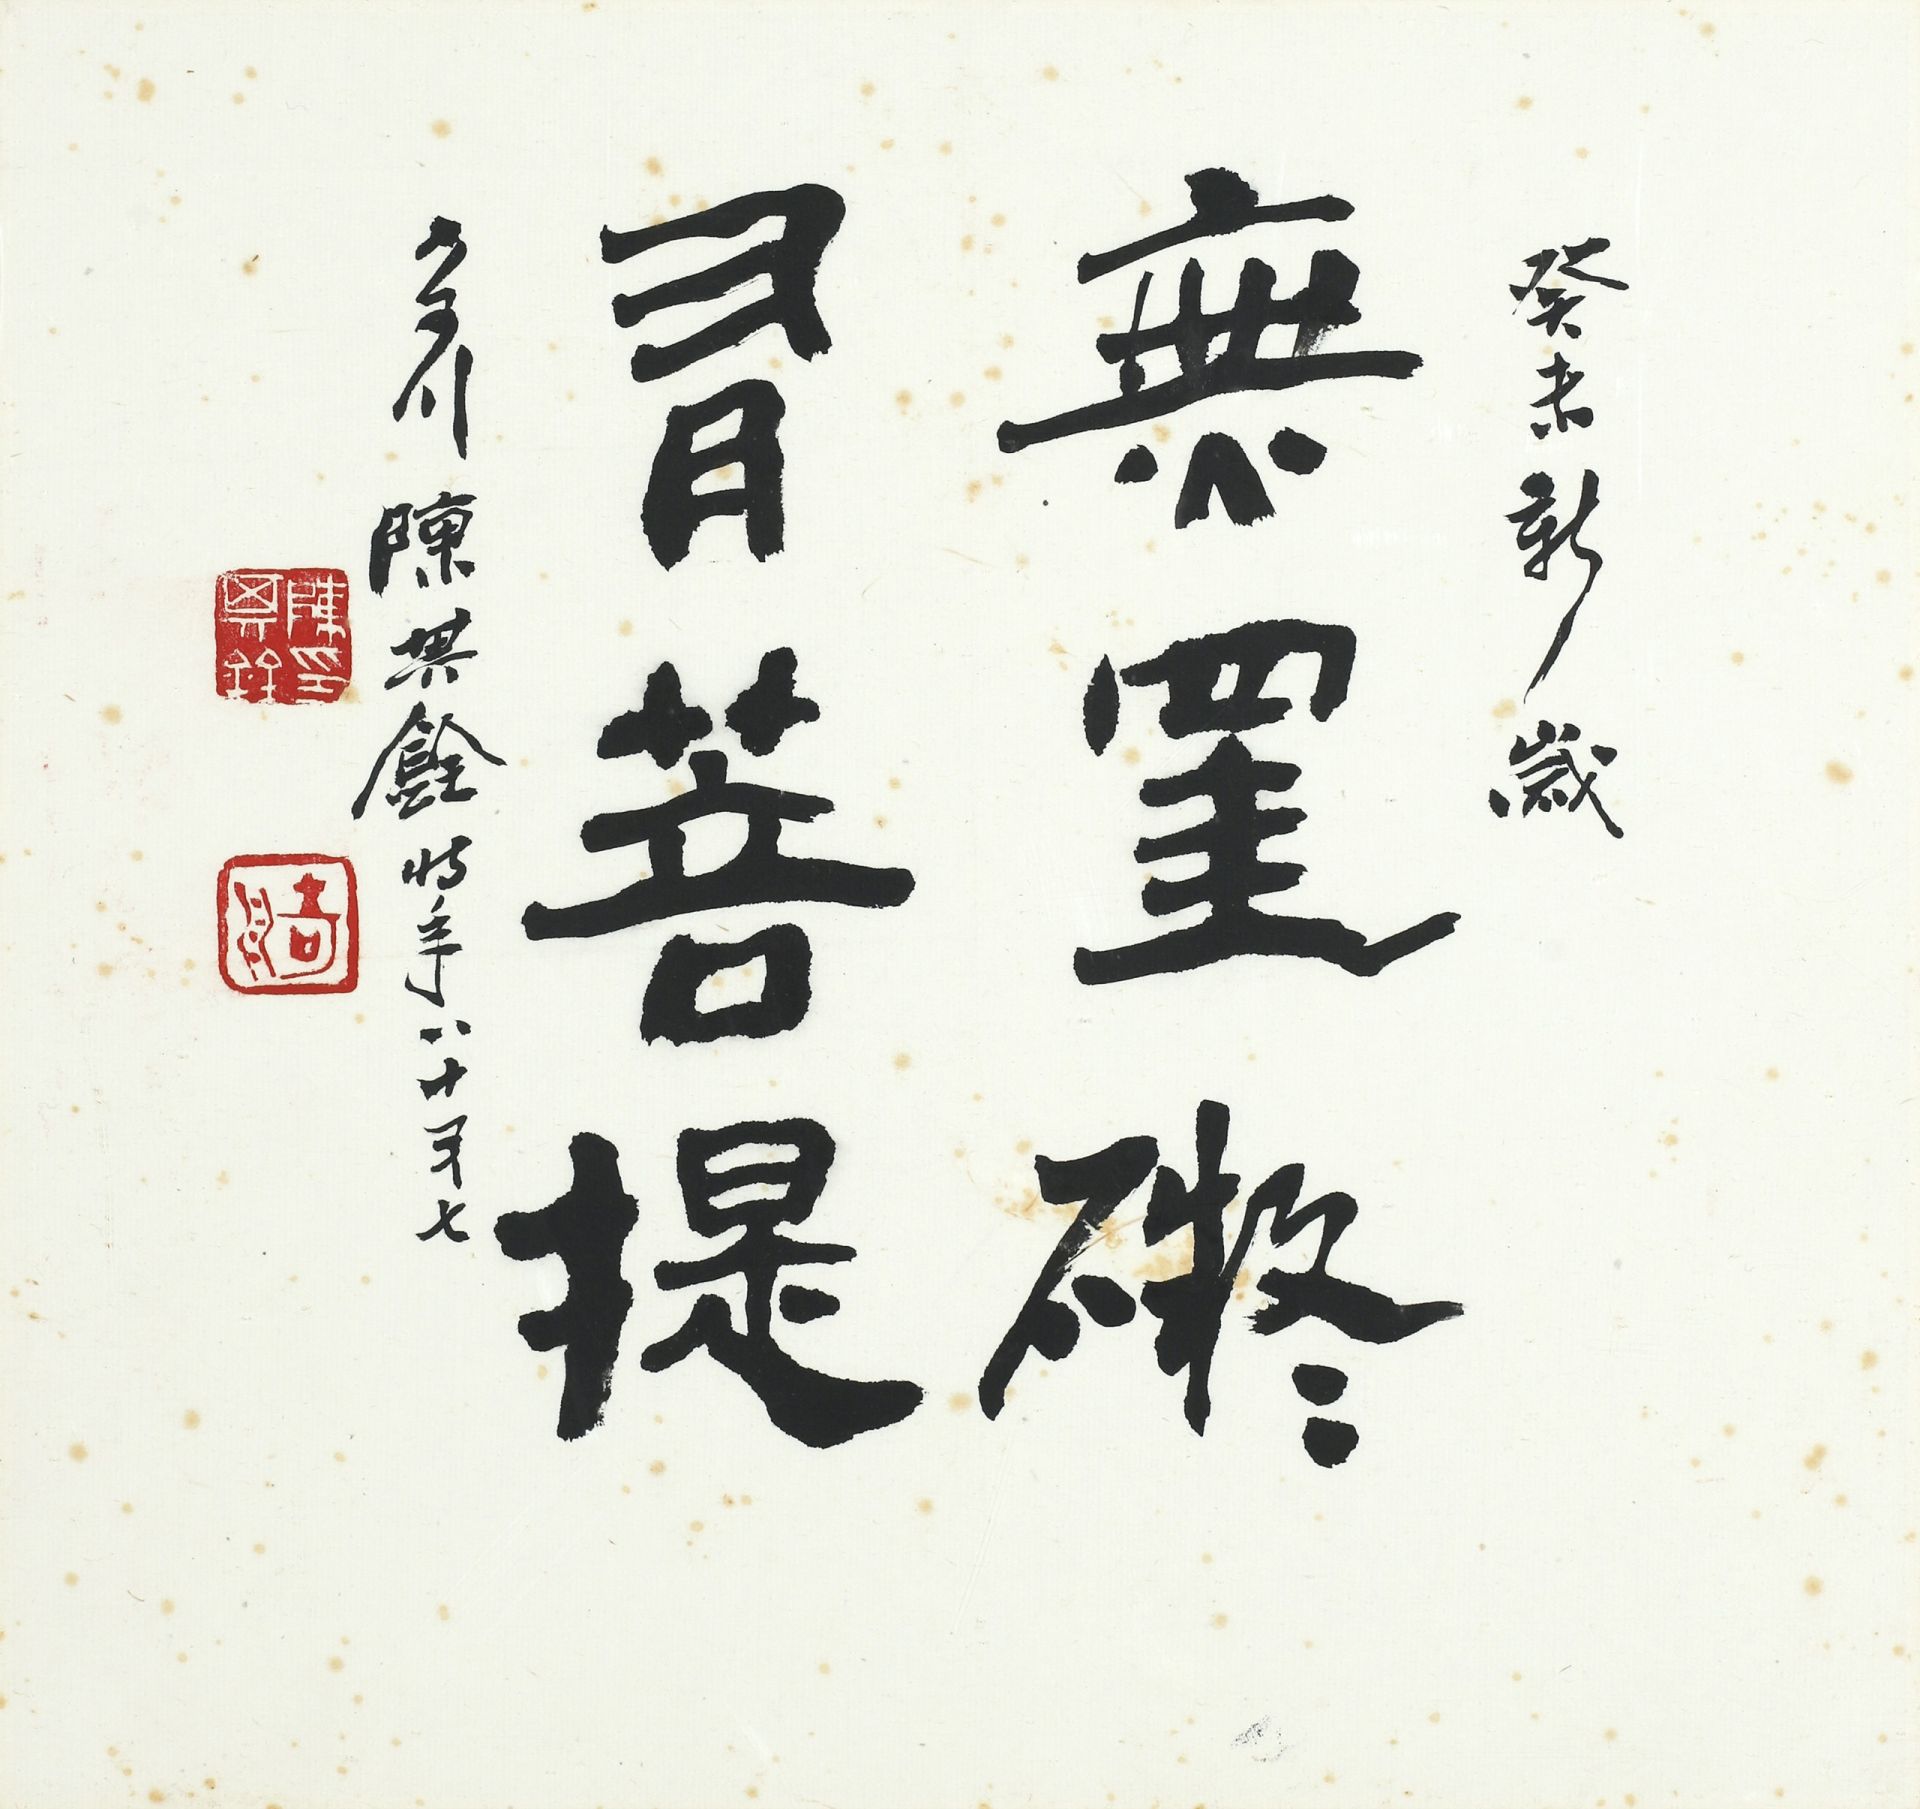 癸未新歲
無罣礙
有菩提
虛川陳其銓時年八十又七
陳其銓印